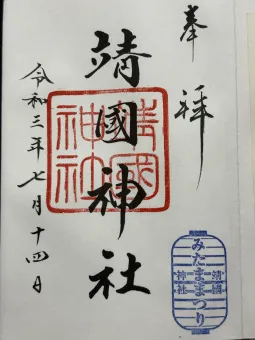 奉拝
靖國神社
令和三年七月十四日
靖國神社
みたままつり
靖國神社